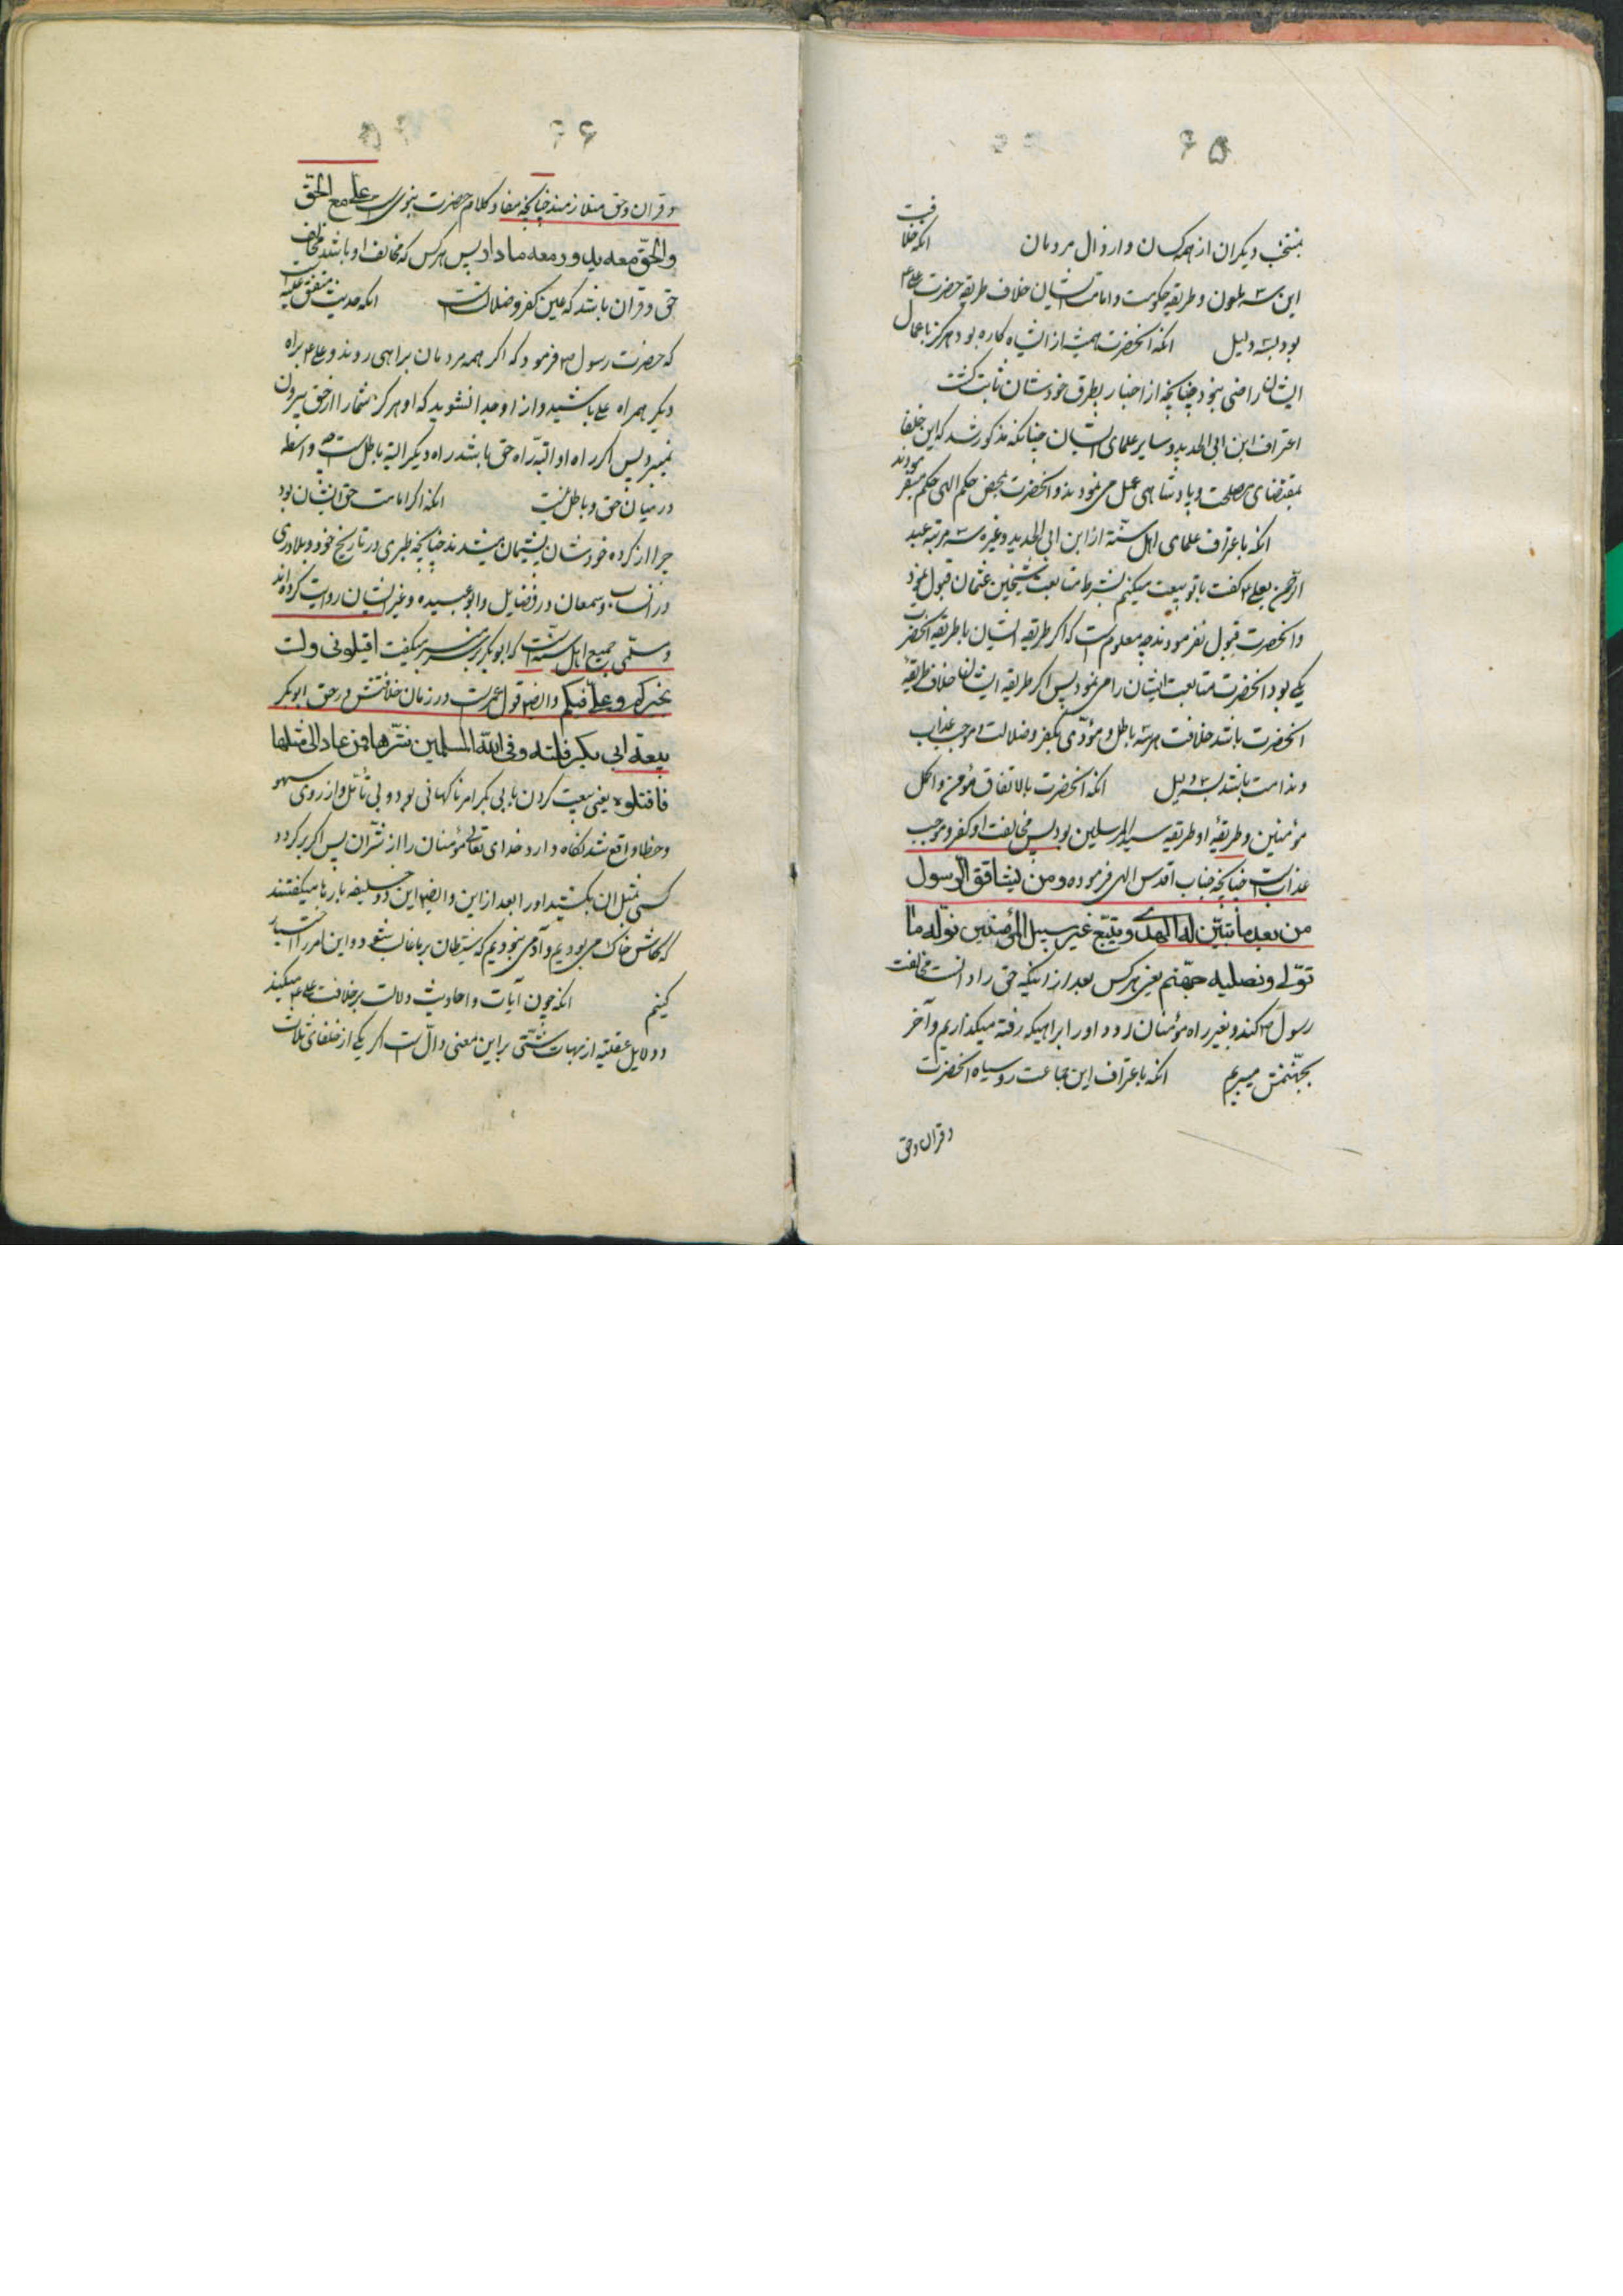 ۶۵
بمنتخب دیکران از همه کسان و ارذال مردمان انکه خلافت
این سه ملعون و طریقه حکومت و امامت ایشان خلاف طریقه حضرت علی ع
بود بسه دلیل انکه انحضرت همیشه از ایشان کاره بود و هرکز باعمال
ایشان راضی نبود چنانچه از اخبار بطرق خودشان ثابت کشت
اعتراف ابن ابی الحدید و سایر علمای ایشان چنانکه مذکور شد که این خلفا
بمقتضای مصلحت و پادشاهی عمل می نمودند و انحضرت بمحض حکم الهی حکم میفرمودند
انکه باعتراف علمای اهل سنة از ابن ابی الحدید و غیره سه مرتبه عبد
الرحمن بعلی ع کفت با تو بیعت میکنم بشرط متابعت شیخین عثمان قبول نمود
و انحضرت قبول نفرمودند چه معلوم است که اکر طریقه ایشان با طریقه انحضرت
یکی بود انحضرت متابعت ایشان را می نمود پس اکر طریقه ایشان خلاف طریقهٔ
انحضرت باشد خلافت هر سه باطل و مؤدّی بکفر و ضلالت و موجب عذاب
و ندامت باشد بسه دلیل انکه انحضرت بالاتفاق مؤمن و اکمل
مؤمنین و طریقهٔ او طریقه سید المرسلین بود پس مخالفت او کفر و موجب
عذاب است چنانکه جناب اقدس الهی فرموده و من یشاقق الرسول
من بعد ما تبیّن له الهدی و یتبع غیر سبیل المؤمنین نولّه ما
تولّی و نصلیه جهنّم یعنی هر کس بعد از اینکه حق را دانست مخالفت
رسول ص کند و بغیر راه مؤمنان رود او را براهیکه رفته میکذاریم و آخر
بجهنّمش میبریم انکه باعتراف این جماعت روسیاه انحضرت
و قران و حق
۶۶
و قران و حق متلازمند چنانچه مفاد کلام حضرت نبوی است علی مع الحق
و الحقّ معه یدور معه ما دار پس هر کس که مخالف او باشد مخالف
حق و قران باشد که عین کفر و ضلالت است انکه حدیث متفق علیه است
که حضرت رسول ص فرمود که اکر همه مردمان براهی روند و علی ع براه
دیکر همراه علی باشید و از او جدا نشوید که او هرکز شما را از حق بیرون
نمیبرد پس اکر راه او البتّه راه حق باشد راه دیکر البته باطل است چه واسطه
در میان حق و باطل نیست انکه اکر امامت حق ایشان بود
چرا از کرده خودشان پشیمان میشدند چنانچه طبری در تاریخ خود و بلادری
در انساب و سمعان در فضایل و ابو عبیده و غیر ایشان روایت کرده اند
و مسلّمی جمیع اهل سنّت است که ابوبکر بر سر منبر میکفت اقیلونی و لست
بخیرکم و علیّ فیکم و ایضا قول عمر است در زمان خلافتش در حق ابوبکر
بیعة ابی بکر فلتة وقی الله المسلمین شرّها فمن عاد الی مثلها
فاقتلوه یعنی بیعت کردن با بی بکر امر ناکهانی بود و بی تأمّل و از روی سهو
و خطا واقع شد نکاه دارد خدای تعالی مؤمنان را از شرّ ان پس اکر بر کردد
کسی بمثل ان بکشید او را بعد از این و ایضا این دو خلیفه بارها میکفتند
که کاش خاک می بودیم و آدمی نبودیم که شیطان بر ما غالب شود و این امر را اختیار
کنیم انکه چون آیات و احادیث دلالت بر خلافت علی ع میکند
و دلایل عقلیّه از جهات شتّی بر این معنی دالّ است اکر یکی از خلفای ثلاث